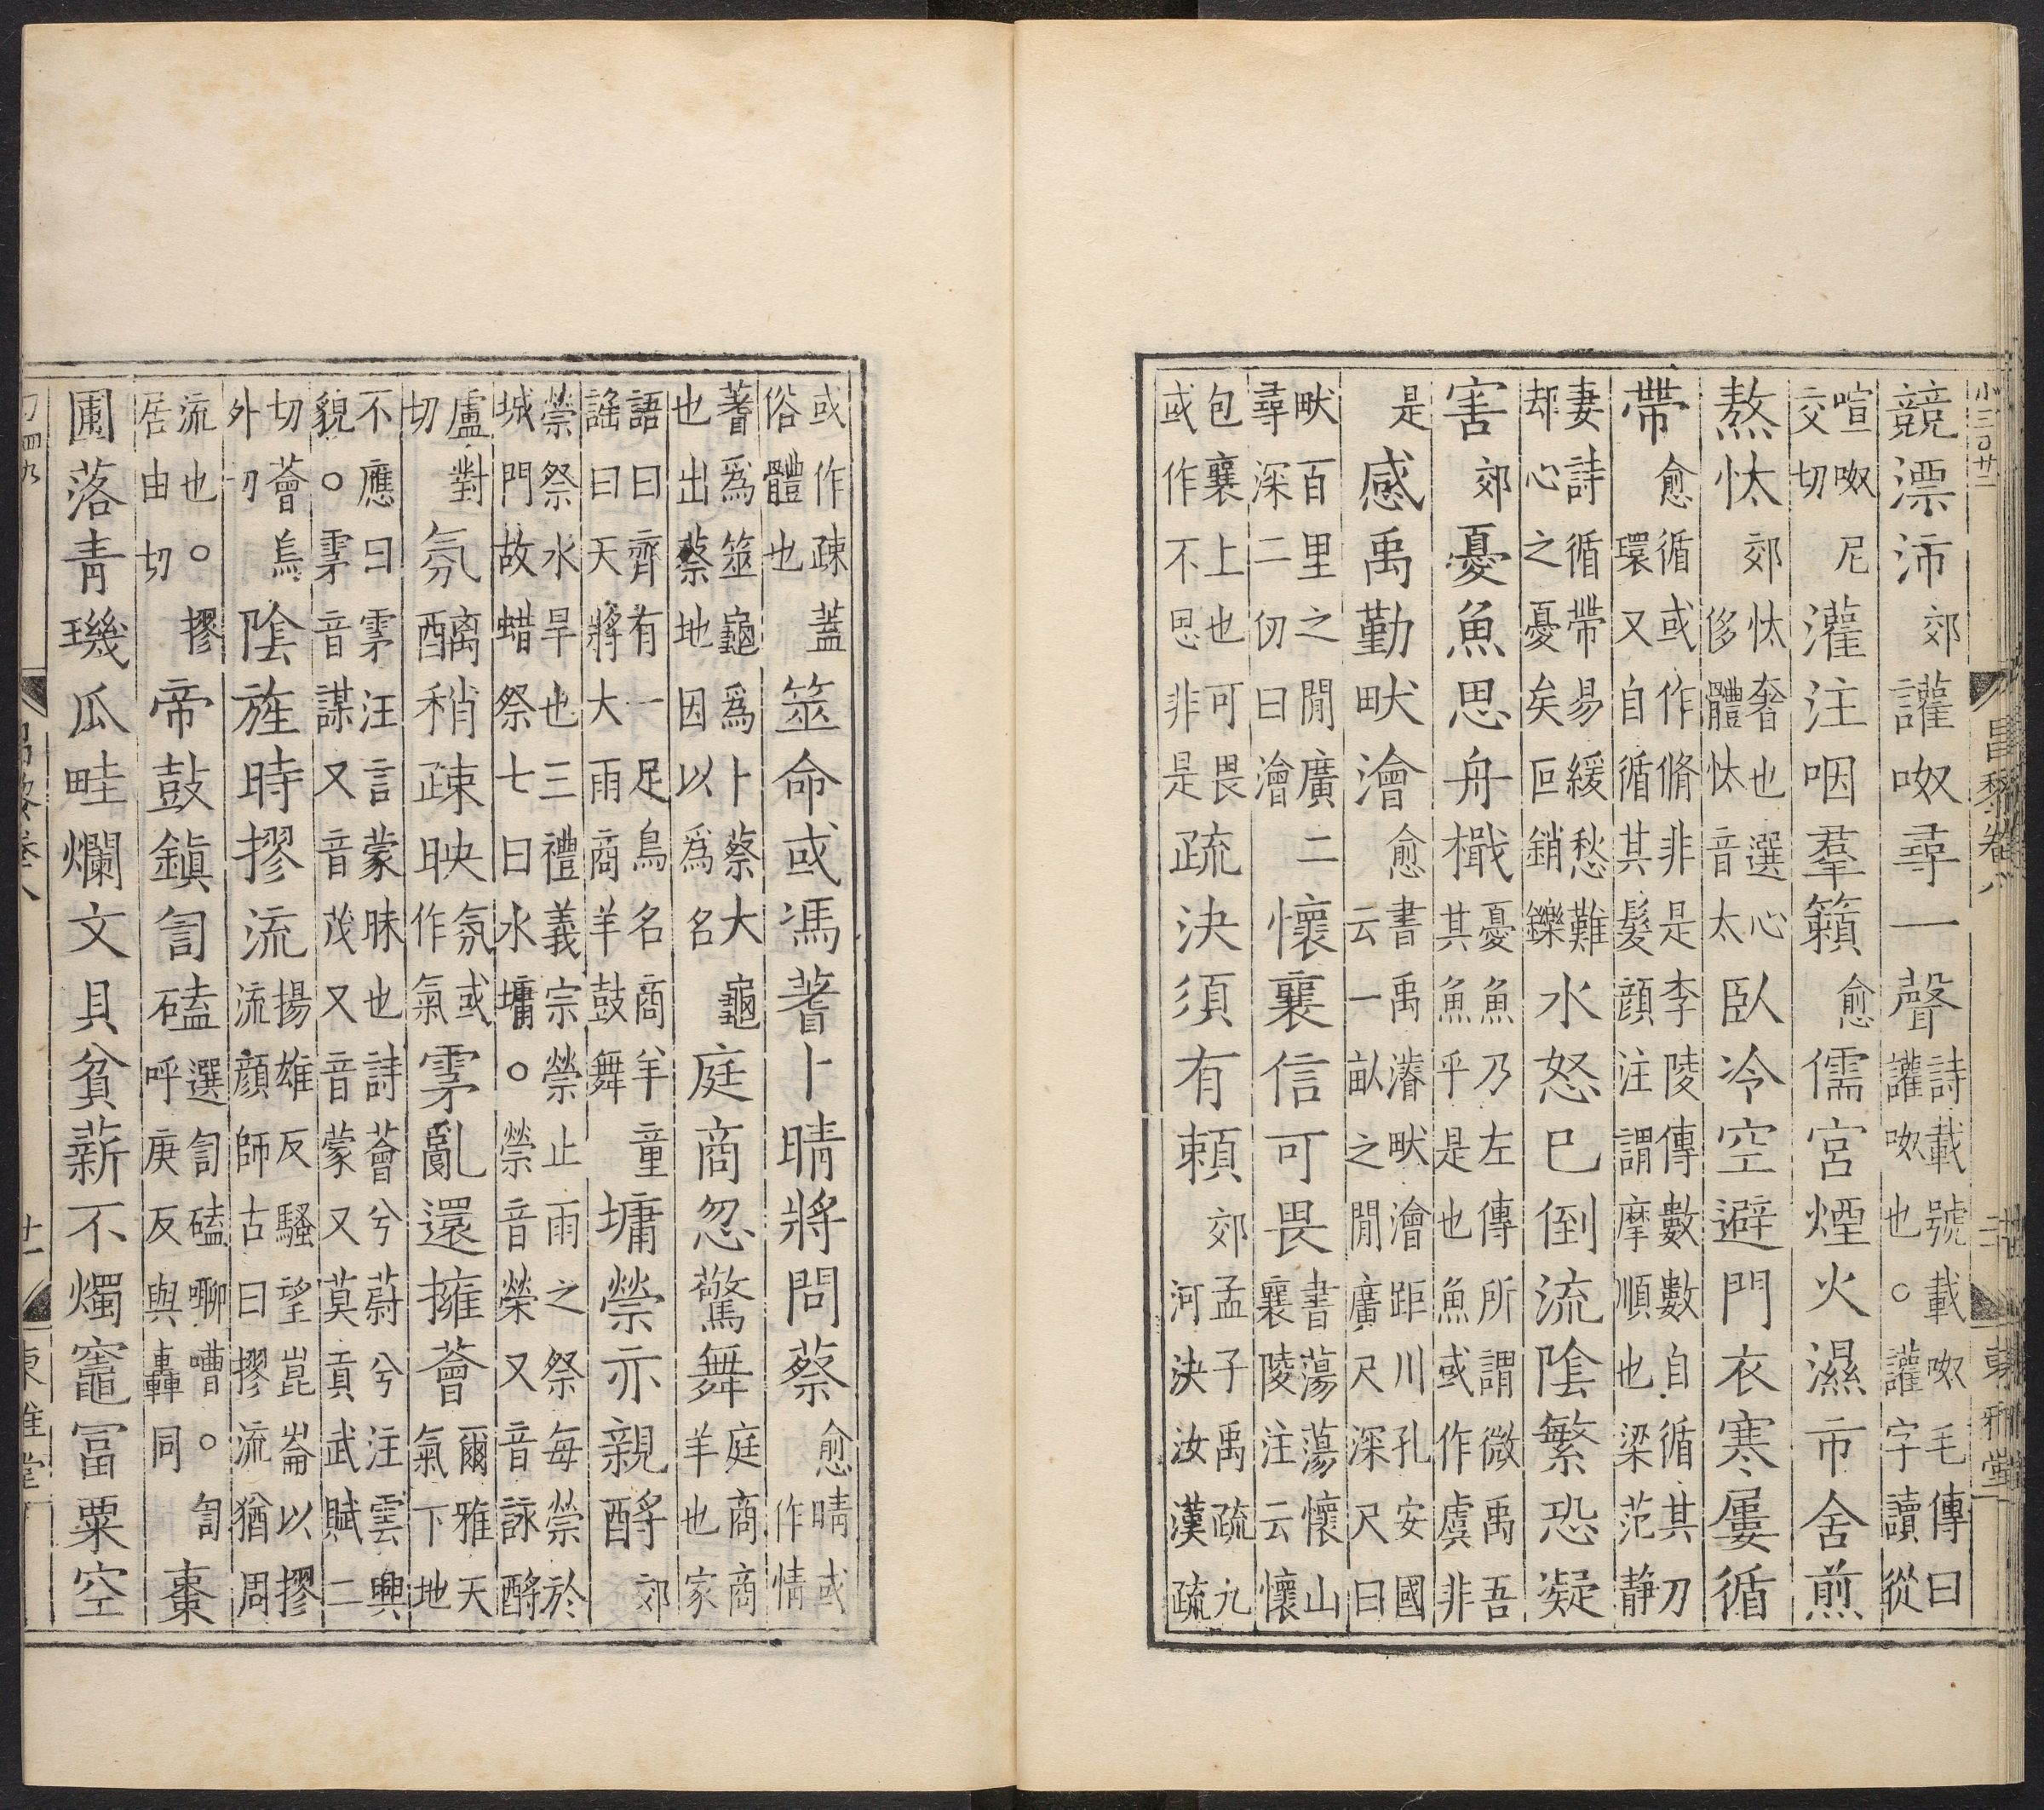 小三百廿三　昌黎卷八　東雅堂
競漂沛郊讙呶尋一聲詩載號載呶毛傳曰讙呶也○讙字讀從
喧呶尼交切灌注咽羣籟愈儒宮煙火濕市舍煎
熬忲郊忲奢也選心侈體忲音太臥冷空避門衣寒屢循
帶愈循或作脩非是李陵傳數數自循其刀環又自循其髮顔注謂摩順也梁范静
妻詩循帶易緩愁難却心之憂矣叵銷鑠水怒已倒流陰繁恐凝
害郊憂魚思舟檝憂魚魚乃左傳所謂微禹吾其魚乎是也魚或作虞非
是感禹勤畎澮愈書禹濬畎澮距川孔安國云一畝之間廣尺深尺曰
畎百里之間廣二尋深二仞曰澮懷襄信可畏書蕩蕩懷山襄陵注云懷
包襄上也可畏或作不思非是疏決須有賴郊孟子禹疏九河決汝漢疏
或作疎蓋俗體也筮命或馮蓍卜晴將問蔡愈晴或作情
蓍爲筮龜爲卜蔡大龜也出蔡地因以爲名庭商忽驚舞庭商商羊也家
語曰齊有一足鳥名商羊童謡曰天將大雨商羊鼓舞墉禜亦親酹郊
禜祭水旱也三禮義宗禜止雨之祭每禜於城門故蜡祭七曰水墉○禜音榮又音詠酹
盧對切氛醨稍疎映氛或作氣雺亂還擁薈爾雅天氣下地
不應曰雺汪言蒙昧也詩薈兮蔚兮注雲興貌○雺音謀又音茂又音蒙又莫貢武賦二
切薈烏外切陰旌時摎流揚雄反騷望崑崙以摎流顔師古曰摎流猶周
流也○摎居由切帝鼓鎮訇磕選訇磕聊嘈○訇呼庚反與轟同棗
圃落青璣瓜畦爛文貝貧薪不燭竈富粟空